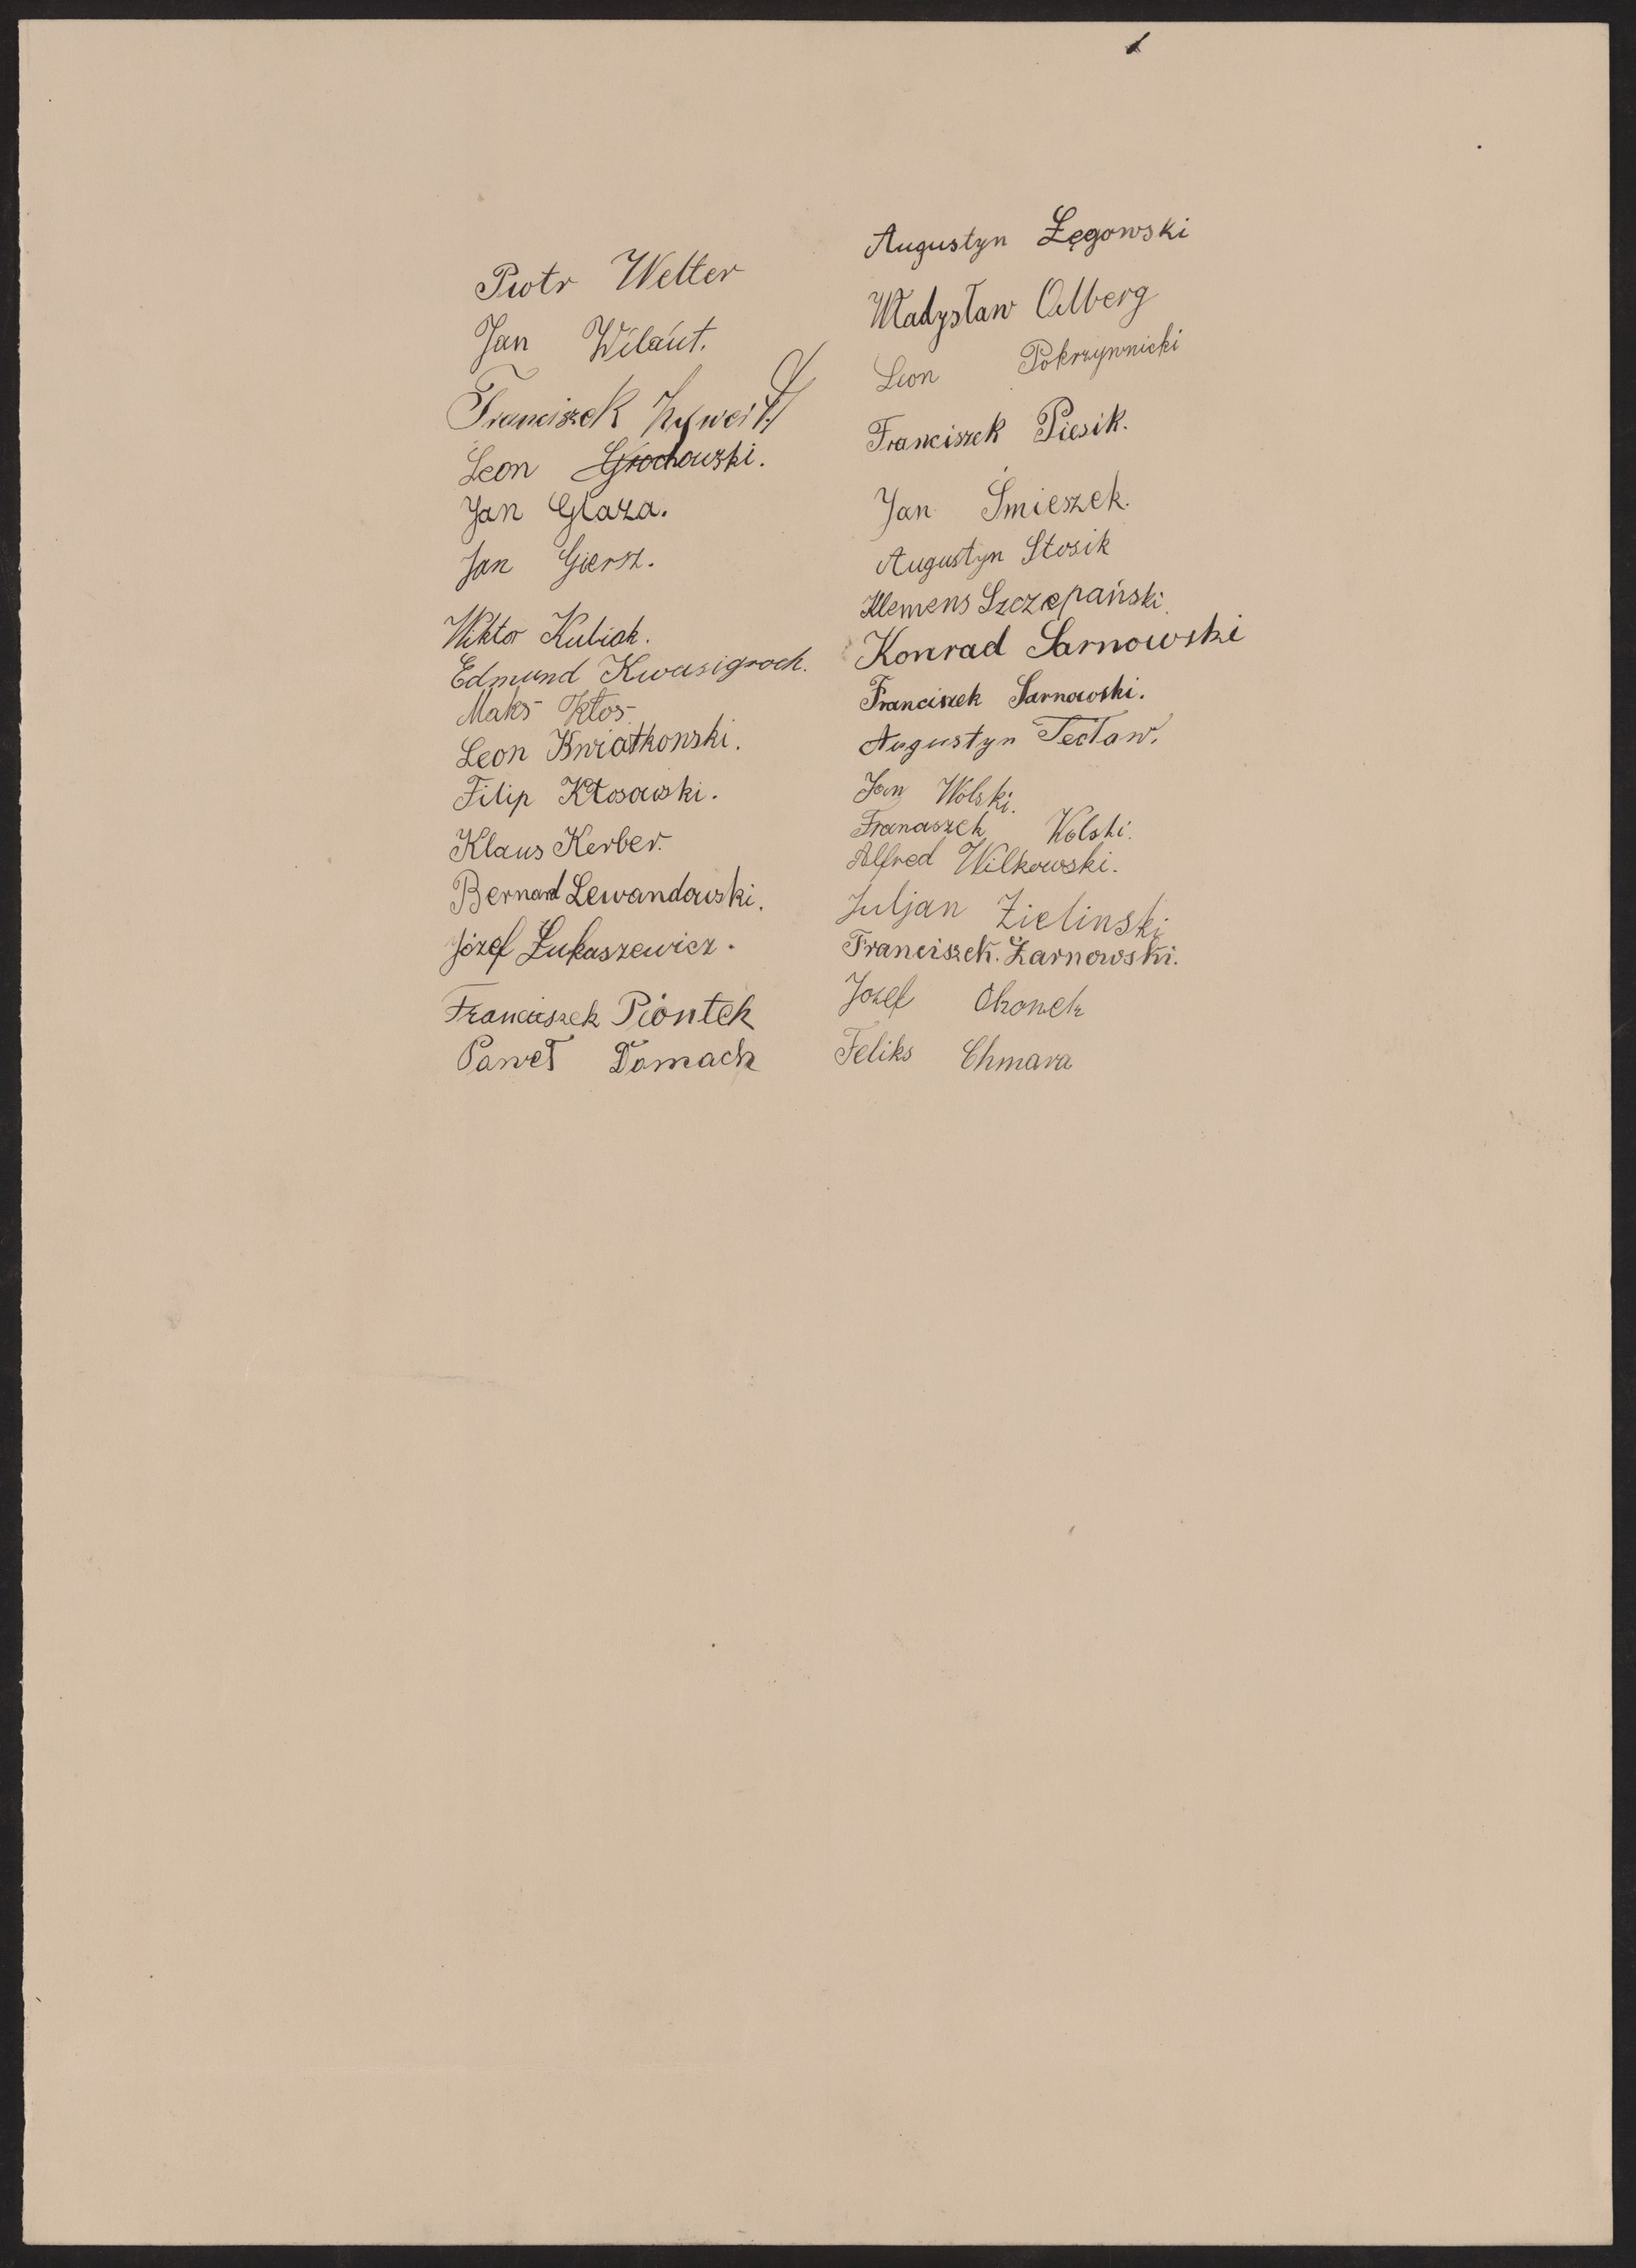 Piotr Welter
Jan Wilant.
Franciszek
Leon Grochowski.
Jan Glaza.
Jan Giersz.
Wiktor Kubiak.
Edmund Kwasigroch.
Maks Kłos
Leon Kwiatkowski.
Filip Kłosowski.
Klaus Kerber.
Bernard Lewandowski.
Józef Łukaszewicz.
Franciszek Piontek
Paweł Domach
Augustyn Łęgowski
Władysław Olberg
Leon Pokrzywnicki
Franciszek Piesik.
Jan Śmieszek.
Augustyn Stosik
Klemens Szczepański.
Konrad Sarnowski
Franciszek Sarnowski.
Augustyn Tecław.
Jan Wolski.
Franciszek Wolski.
Alfred Wilkowski.
Juljan Zielinski
Franciszek. Żarnowski.
Jozef Chonek
Feliks Chmara